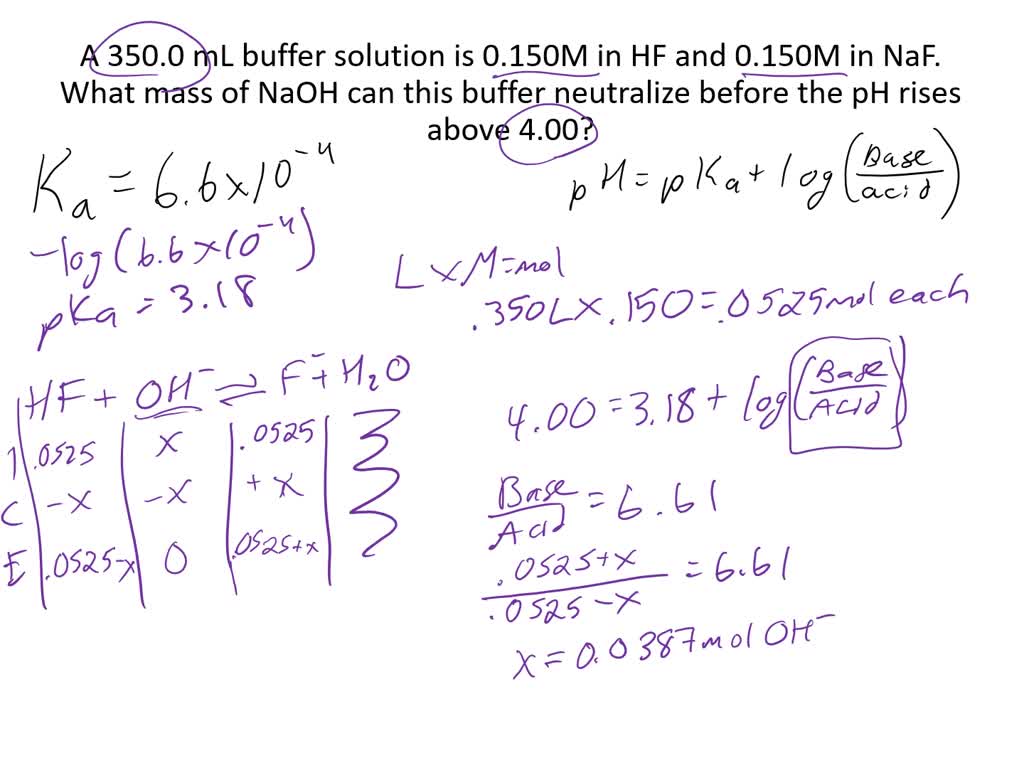 A 350.0 mL buffer solution is 0.150M in HF and 0.150M in NaF.
What mass of NaOH can this buffer neutralize before the pH rises
above 4.00?
Ka = 6.6x10⁻⁴
pH = pKa + log(Base/acid)
-log(6.6x10⁻⁴)
pKa = 3.18
LxM=mol
.350Lx.150=.0525mol each
HF + OH⁻ ⇌ F⁻ + H₂O
I .0525 | x | .0525
C -x | -x | +x
E .0525-x | 0 | .0525+x
4.00 = 3.18 + log(Base/ACid)
Base/Acid = 6.61
.0525+x/.0525-x = 6.61
x = 0.0387mol OH⁻